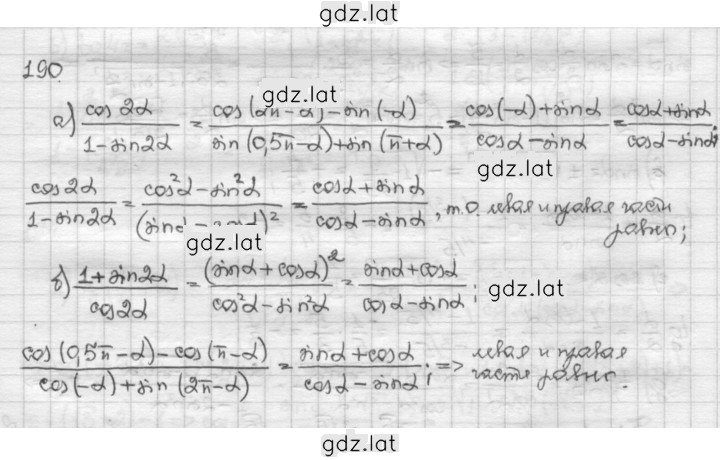 gdz.lat
190
gdz.lat
а) cos2α/(1-sin2α) = (cos(2π-α)-sin(-α))/(sin(0,5π-α)+sin(π+α)) = (cos(-α)+sinα)/(cosα-sinα) = (cosα+sinα)/(cosα-sinα);
gdz.lat
cos2α/(1-sin2α) = (cos²α-sin²α)/(sinα-cosα)² = (cosα+sinα)/(cosα-sinα), т.о. левая и правая части
равны;
gdz.lat
б) (1+sin2α)/cos2α = (sinα+cosα)²/(cos²α-sin²α) = (sinα+cosα)/(cosα-sinα);
gdz.lat
(cos(0,5π-α)-cos(π-α))/(cos(-α)+sin(2π-α)) = (sinα+cosα)/(cosα-sinα); => левая и правая
части равны.
gdz.lat